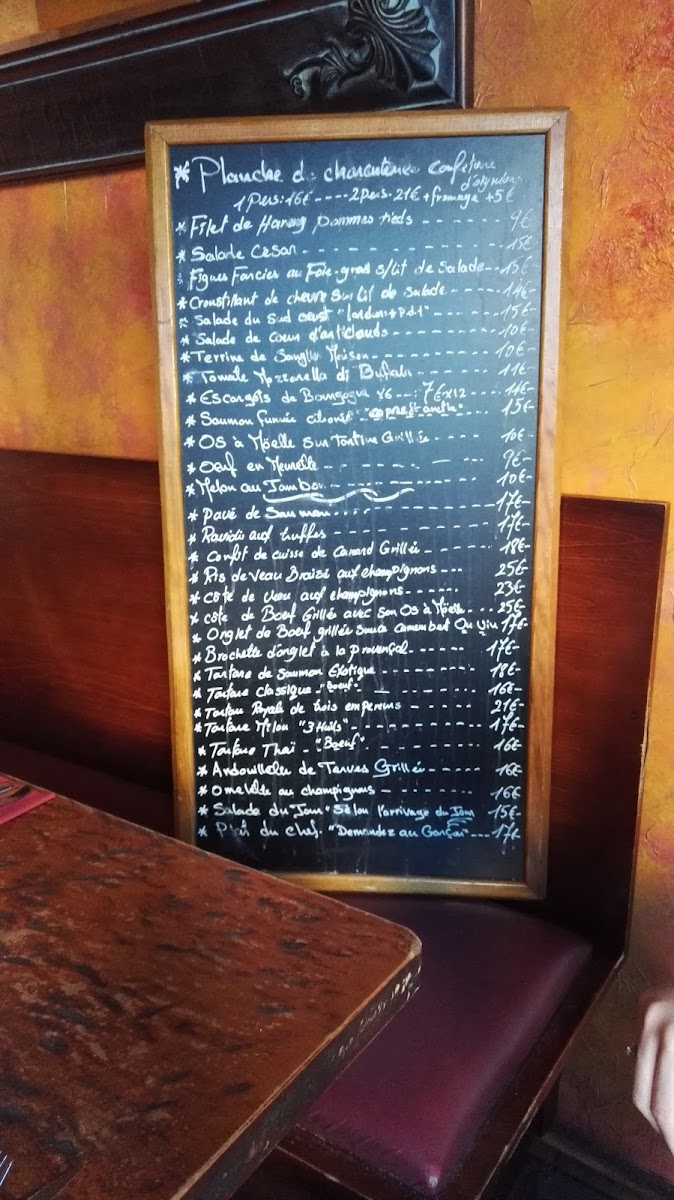 * Planche de charcuterie confiture
d'oignons
1 pers: 16€ ---- 2 pers. 21€ + fromage +5€
* Filet de Hareng pommes tieds ------- 9€
* Salade César ------- 15€
* Figues Farcies au Foie-gras s/lit de Salade -- 15€
* Croustillant de chevre sur lit de salade ---- 14€-
* Salade du sud ouest "landais + P.d.T" ---- 15€-
* Salade de Coeur d'artichauds ---- 10€-
* Terrine de Sanglier Maison ------- 10€-
* Tomate Mozzarella di Bufala ------ 11€-
* Escargots de Bourgogne x6 --: 7€ x12 ---- 14€-
* Saumon fumée citronée ---- 15€-
* Os à Moelle sur Tartine Grillée ---- 10€-
* Oeuf en Meurette ------- 9€-
* Melon au Jambon ------- 10€-
* Pavé de Saumon ------- 17€-
* Raviolis aux truffes ------- 17€-
* Confit de cuisse de Canard Grillée ----- 18€-
* Ris de veau Braisé aux champignons --- 25€-
* Côte de veau aux champignons ----- 23€-
* Côte de Boeuf Grillée avec son Os à Moelle --- 25€-
* Onglet de Boeuf grillée sauce camembert 17€-
* Brochette d'onglet à la provençal ----- 17€-
* Tartare de Saumon Exotique ------- 18€-
* Tartare classique "Boeuf" ------- 16€-
* Tartare Royale de trois empereurs ----- 21€-
* Tartare Milou "3 Huils" ------- 17€-
* Tartare Thaï - "Boeuf" ------- 16€-
* Andouillette de Grillée ------ 16€-
* Omelette au champignons ------ 16€
* Salade du Jour "Selon l'arrivage du Jour 15€-
* Plat du chef. "Demandez au Garçon" --- 17€